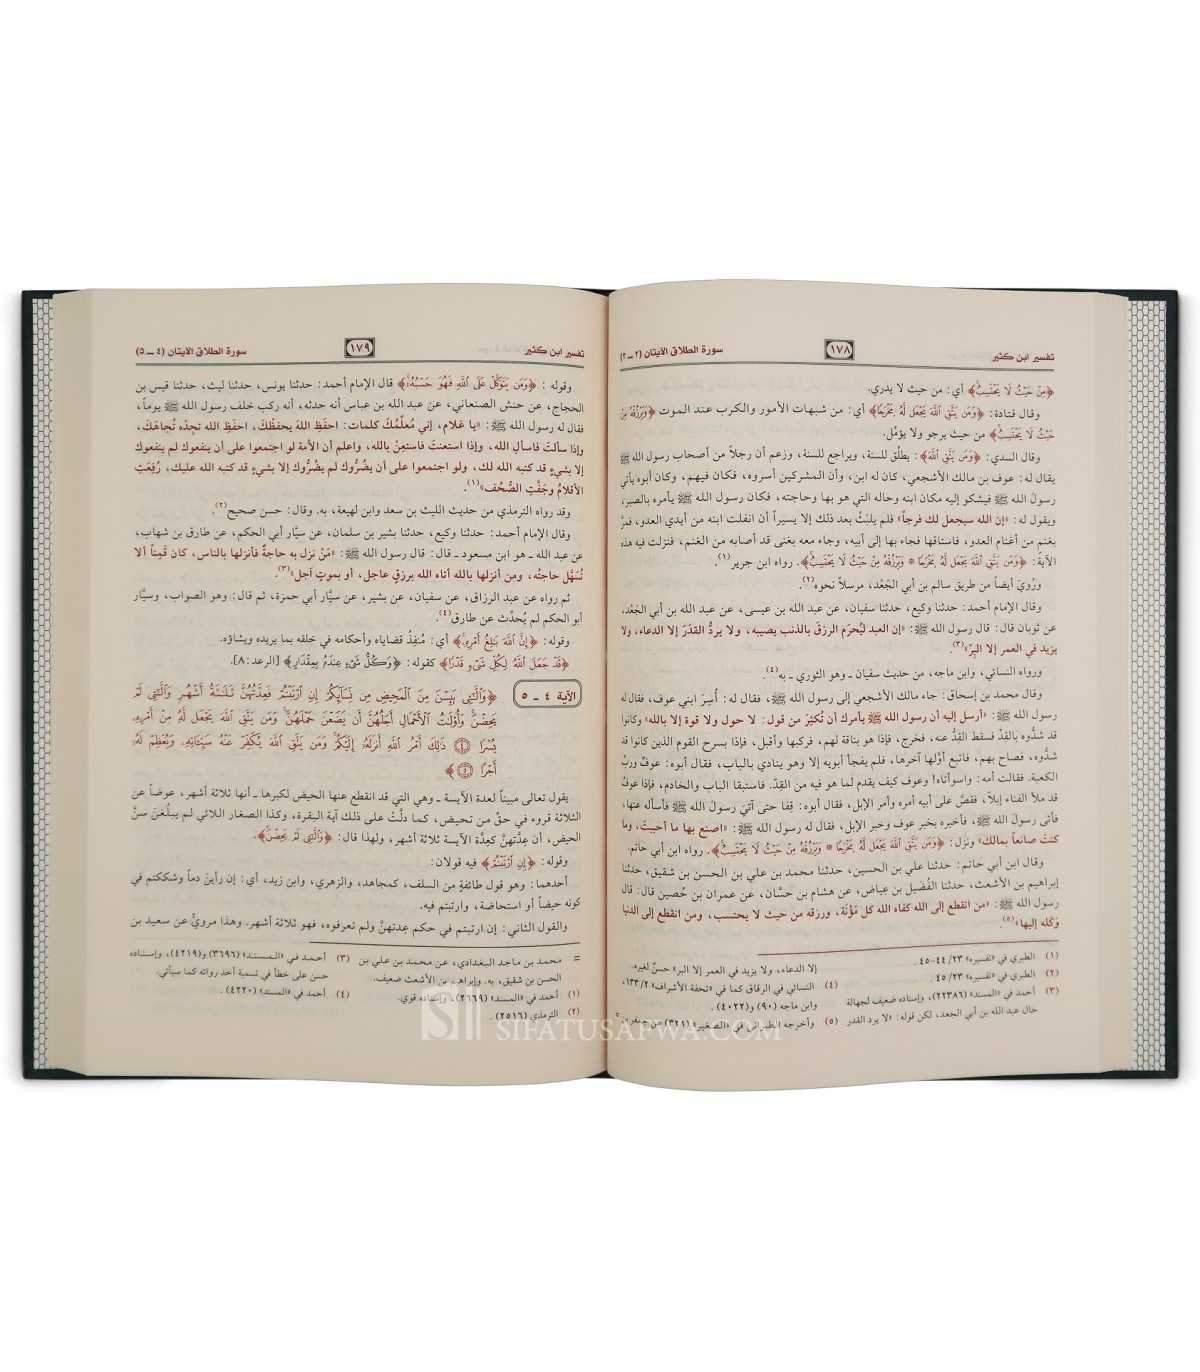 تفسير ابن كثير ١٧٨ سورة الطلاق الآيتان (٢ ـ ٣)
﴿مِنْ حَيْثُ لَا يَحْتَسِبُ﴾ أي: من حيث لا يدري.
وقال قتادة: ﴿وَمَن يَتَّقِ ٱللَّهَ يَجْعَل لَّهُ مَخْرَجًا﴾ أي: من شبهات الأمور والكرب عند الموت ﴿وَيَرْزُقْهُ مِنْ
حَيْثُ لَا يَحْتَسِبُ﴾ من حيث يرجو ولا يؤمّل.
وقال السدي: ﴿وَمَن يَتَّقِ ٱللَّهَ﴾: يطلّق للسنة، ويراجع للسنة، وزعم أن رجلاً من أصحاب رسول الله ﷺ
يقال له: عوف بن مالك الأشجعي، كان له ابن، وأن المشركين أسروه، فكان فيهم، وكان أبوه يأتي
رسول الله ﷺ فيشكو إليه مكان ابنه وحاله التي هو بها وحاجته، فكان رسول الله ﷺ يأمره بالصبر،
ويقول له: «إن الله سيجعل لك فرجاً» فلم يلبث بعد ذلك إلا يسيراً أن انفلت ابنه من أيدي العدو، فمرَّ
بغنم من أغنام العدو، فاستاقها فجاء بها إلى أبيه، وجاء معه بغنى قد أصابه من الغنم، فنزلت فيه هذه
الآية: ﴿وَمَن يَتَّقِ ٱللَّهَ يَجْعَل لَّهُ مَخْرَجًا * وَيَرْزُقْهُ مِنْ حَيْثُ لَا يَحْتَسِبُ﴾. رواه ابن جرير(١).
ورُوِيَ أيضاً من طريق سالم بن أبي الجَعْد، مرسلاً نحوه(٢).
وقال الإمام أحمد: حدثنا وكيع، حدثنا سفيان، عن عبد الله بن عيسى، عن عبد الله بن أبي الجَعْد،
عن ثوبان قال: قال رسول الله ﷺ: «إن العبد ليُحرَم الرزقَ بالذنب يصيبه، ولا يردُّ القدَرَ إلا الدعاء، ولا
يزيد في العمر إلا البِرّ»(٣).
ورواه النسائي، وابن ماجه، من حديث سفيان ـ وهو الثوري ـ به(٤).
وقال محمد بن إسحاق: جاء مالك الأشجعي إلى رسول الله ﷺ، فقال له: أُسِرَ ابني عوف، فقال له
رسول الله ﷺ: «أرسل إليه أن رسول الله ﷺ يأمرك أن تُكثِرَ من قول: لا حول ولا قوة إلا بالله» وكانوا
قد شدُّوه بالقِدِّ فسقط القِدُّ عنه، فخرج، فإذا هو بناقة لهم، فركبها وأقبل، فإذا بسرح القوم الذين كانوا قد
شدُّوه، فصاح بهم، فاتبع أوَّلها آخرها، فلم يفجأ أبويه إلا وهو ينادي بالباب، فقال أبوه: عوفٌ وربِّ
الكعبة. فقالت أمه: واسوأتاه! وعوف كيف يقدم لما هو فيه من القِدّ. فاستبقا الباب والخادم، فإذا عوفٌ
قد ملأ الفناء إبلاً، فقصَّ على أبيه أمره وأمر الإبل، فقال أبوه: قِفا حتى آتيَ رسولَ الله ﷺ فأسأله عنها،
فأتى رسولَ الله ﷺ، فأخبره بخبر عوف وخبر الإبل، فقال له رسول الله ﷺ: «اصنع بها ما أحببتَ، وما
كنتَ صانعاً بمالك» ونزل: ﴿وَمَن يَتَّقِ ٱللَّهَ يَجْعَل لَّهُ مَخْرَجًا * وَيَرْزُقْهُ مِنْ حَيْثُ لَا يَحْتَسِبُ﴾. رواه ابن أبي حاتم.
وقال ابن أبي حاتم: حدثنا علي بن الحسين، حدثنا محمد بن علي بن الحسن بن شقيق، حدثنا
إبراهيم بن الأشعث، حدثنا الفُضَيل بن عِياض، عن هشام بن حسَّان، عن عمران بن حُصين قال: قال
رسول الله ﷺ: «من انقطع إلى الله كفاه الله كل مؤْنَة، ورزقه من حيث لا يحتسب، ومن انقطع إلى الدنيا
وَكَله إليها»(٥).
(١) الطبري في «تفسيره» ٢٣/ ٤٤-٤٥.
(٢) الطبري في «تفسيره» ٢٣/ ٤٥.
(٣) أحمد في «المسند» (٢٢٣٨٦)، وإسناده ضعيف لجهالة
حال عبد الله بن أبي الجعد، لكن قوله: «لا يرد القدر
إلا الدعاء، ولا يزيد في العمر إلا البر» حسنٌ لغيره.
(٤) النسائي في الرقاق كما في «تحفة الأشراف» ٢/ ١٣٣،
وابن ماجه (٩٠) و(٤٠٢٢).
(٥) وأخرجه الطبراني في «الصغير» (٣٢١) عن جعفر
تفسير ابن كثير ١٧٩ سورة الطلاق الآيتان (٤ ـ ٥)
وقوله: ﴿وَمَن يَتَوَكَّلْ عَلَى ٱللَّهِ فَهُوَ حَسْبُهُ﴾ قال الإمام أحمد: حدثنا يونس، حدثنا ليث، حدثنا قيس بن
الحجاج، عن حنش الصنعاني، عن عبد الله بن عباس أنه حدثه، أنه ركب خلف رسول الله ﷺ يوماً،
فقال له رسول الله ﷺ: «يا غلام، إني مُعلِّمُكَ كلمات: احفَظِ اللهَ يحفظْكَ، احفَظِ الله تجدْه تُجاهَكَ،
وإذا سألتَ فاسألِ الله، وإذا استعنتَ فاستعِنْ بالله، واعلم أن الأمة لو اجتمعوا على أن ينفعوك لم ينفعوك
إلا بشيءٍ قد كتبه الله لك، ولو اجتمعوا على أن يضُرُّوك لم يضُرُّوك إلا بشيءٍ قد كتبه الله عليك، رُفِعَتِ
الأقلامُ وجَفَّتِ الصُّحُف»(١).
وقد رواه الترمذي من حديث الليث بن سعد وابن لهيعة، به. وقال: حسن صحيح(٢).
وقال الإمام أحمد: حدثنا وكيع، حدثنا بشير بن سلمان، عن سيَّار أبي الحكم، عن طارق بن شهاب،
عن عبد الله ـ هو ابن مسعود ـ قال: قال رسول الله ﷺ: «مَنْ نزل به حاجةٌ فأنزلها بالناس، كان قَمِناً ألا
تُسَهَّل حاجتُه، ومن أنزلها بالله أتاه الله برزقٍ عاجل، أو بموتٍ آجل»(٣).
ثم رواه عن عبد الرزاق، عن سفيان، عن بشير، عن سيَّار أبي حمزة، ثم قال: وهو الصواب، وسيَّار
أبو الحكم لم يُحدِّث عن طارق(٤).
وقوله: ﴿إِنَّ ٱللَّهَ بَٰلِغُ أَمْرِهِ﴾ أي: مُنفِذُ قضاياه وأحكامه في خلقه بما يريده ويشاؤه.
﴿قَدْ جَعَلَ ٱللَّهُ لِكُلِّ شَىْءٍ قَدْرًا﴾ كقوله: ﴿وَكُلُّ شَىْءٍ عِندَهُ بِمِقْدَارٍ﴾ [الرعد: ٨].
الآية ٤ ـ ٥ ﴿وَٱلَّٰٓـِٔى يَئِسْنَ مِنَ ٱلْمَحِيضِ مِن نِّسَآئِكُمْ إِنِ ٱرْتَبْتُمْ فَعِدَّتُهُنَّ ثَلَٰثَةُ أَشْهُرٍ وَٱلَّٰٓـِٔى لَمْ
يَحِضْنَ وَأُو۟لَٰتُ ٱلْأَحْمَالِ أَجَلُهُنَّ أَن يَضَعْنَ حَمْلَهُنَّ وَمَن يَتَّقِ ٱللَّهَ يَجْعَل لَّهُ مِنْ أَمْرِهِ
يُسْرًا ﴿٤﴾ ذَٰلِكَ أَمْرُ ٱللَّهِ أَنزَلَهُ إِلَيْكُمْ وَمَن يَتَّقِ ٱللَّهَ يُكَفِّرْ عَنْهُ سَيِّـَٔاتِهِ وَيُعْظِمْ لَهُ
أَجْرًا ﴿٥﴾﴾
يقول تعالى مبيناً لعدة الآيسة ـ وهي التي قد انقطع عنها الحيض لكبرها ـ أنها ثلاثة أشهر، عوضاً عن
الثلاثة قروء في حقِّ من تحيض، كما دلَّتْ على ذلك آية البقرة، وكذا الصغار اللائي لم يبلُغنَ سنَّ
الحيض، أن عِدَّتهنَّ كعِدَّة الآيسة ثلاثة أشهر، ولهذا قال: ﴿وَٱلَّٰٓـِٔى لَمْ يَحِضْنَ﴾.
وقوله: ﴿إِنِ ٱرْتَبْتُمْ﴾ فيه قولان:
أحدهما: وهو قول طائفةٍ من السلف، كمجاهد، والزهري، وابن زيد، أي: إن رأينَ دماً وشككتم في
كونه حيضاً أو استحاضة، وارتبتم فيه.
والقول الثاني: إن ارتبتم في حكم عِدتهنَّ ولم تعرفوه، فهو ثلاثة أشهر. وهذا مرويٌّ عن سعيد بن
= محمد بن ماجد البغدادي، عن محمد بن علي بن
الحسن بن شقيق، به. وإبراهيم بن الأشعث ضعيف.
(١) أحمد في «المسند» (٢٦٦٩)، وإسناده قوي.
(٢) الترمذي (٢٥١٦).
(٣) أحمد في «المسند» (٣٦٩٦) و(٤٢١٩)، وإسناده
حسن على خطأ في تسمية أحد رواته كما سيأتي.
(٤) أحمد في «المسند» (٤٢٢٠).
SIFATUSAFWA.COM